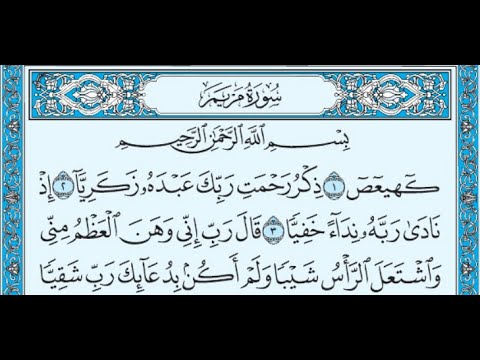 سُورَةُ مَرْيَمَ
بِسْمِ ٱللَّهِ ٱلرَّحْمَٰنِ ٱلرَّحِيمِ
كٓهيعٓصٓ ١ ذِكْرُ رَحْمَتِ رَبِّكَ عَبْدَهُۥ زَكَرِيَّآ ٢ إِذْ
نَادَىٰ رَبَّهُۥ نِدَآءً خَفِيًّا ٣ قَالَ رَبِّ إِنِّى وَهَنَ ٱلْعَظْمُ مِنِّى
وَٱشْتَعَلَ ٱلرَّأْسُ شَيْبًا وَلَمْ أَكُنۢ بِدُعَآئِكَ رَبِّ شَقِيًّا